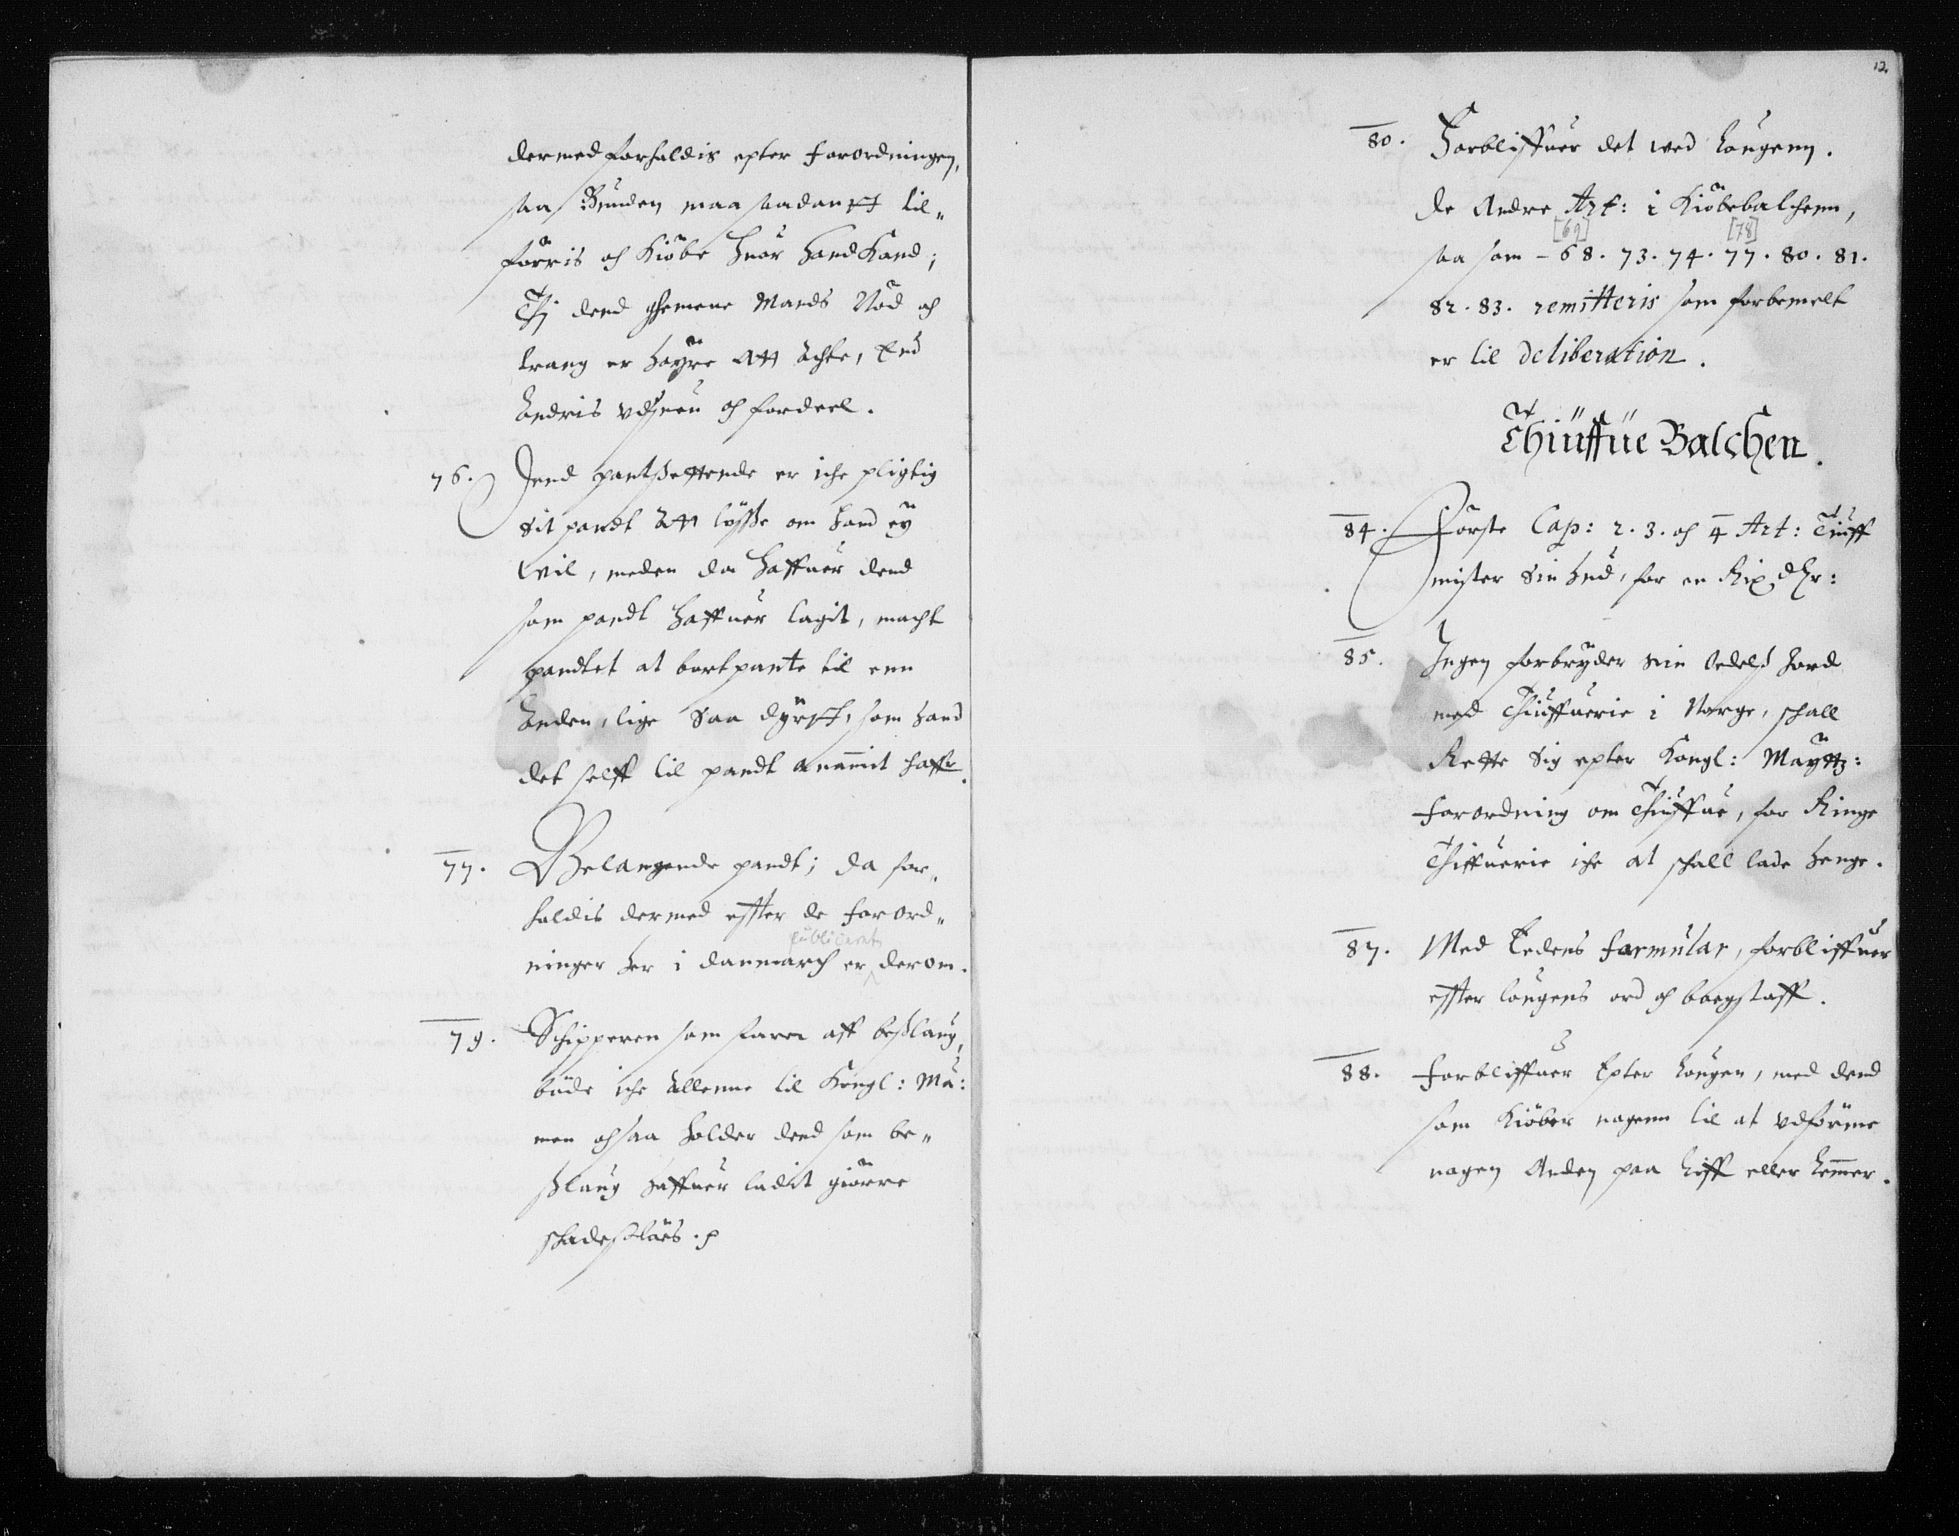 dermed forholdis epter forordningen,
saa Bunden maa saadant til„
förris och Kiöbe huor hand Kand;
Thj dend gemene Mands Nöd och
trang er höyre att achte, End
Andris vdsuen och fordeel.
76. Jend pantsettende er iche pligtig
sit pandt att lösse om hand ey
wil, meden da haffuer dend
som pandt haffuer tagit, macht
pandtet at bortpante til enn
Anden, lige saa dyrt, som hand
det self til pandt anammit haffr.
77. Belangende pandt; da for„
holdis dermed effter de forord„
publicerit
ninger her i danmarch er derom.
79. Schipperen som farer aff beslaug,
böde iche Allenne til Kongl: Ma:
men ochsaa holder dend som be„
slaug haffuer ladit giörre
schadeslöes.
12
80. Forbliffuer det wed Lougenn.
De Andre Art: i Kiöbebalchenn,
[69] [78]
saa som - 68. 73. 74. 77. 80. 81.
82. 83. remitteris som forbemelt
er til deliberation.
Thiüffüe Balchen.
84. Förste Cap: 2. 3. och 4 Art: Tiuff
mister sin hud, for en Rix dlr:
85. Ingen forbryder sin Odels Jord
med Thiuffuerie i Norge, schall
Rette sig epter Kongl: Maytz:
forordning om Thiuffue, for Ringe
Thiffuerie iche at schall lade henge.
87. Med Eedens formular, forbliffuer
effter lougens ord och bogstaff.
88. Forbliffuer Epter Lougen, med dend
som Kiöber nogenn til at vdförme
nogen Anden paa Liff eller Lemmer.